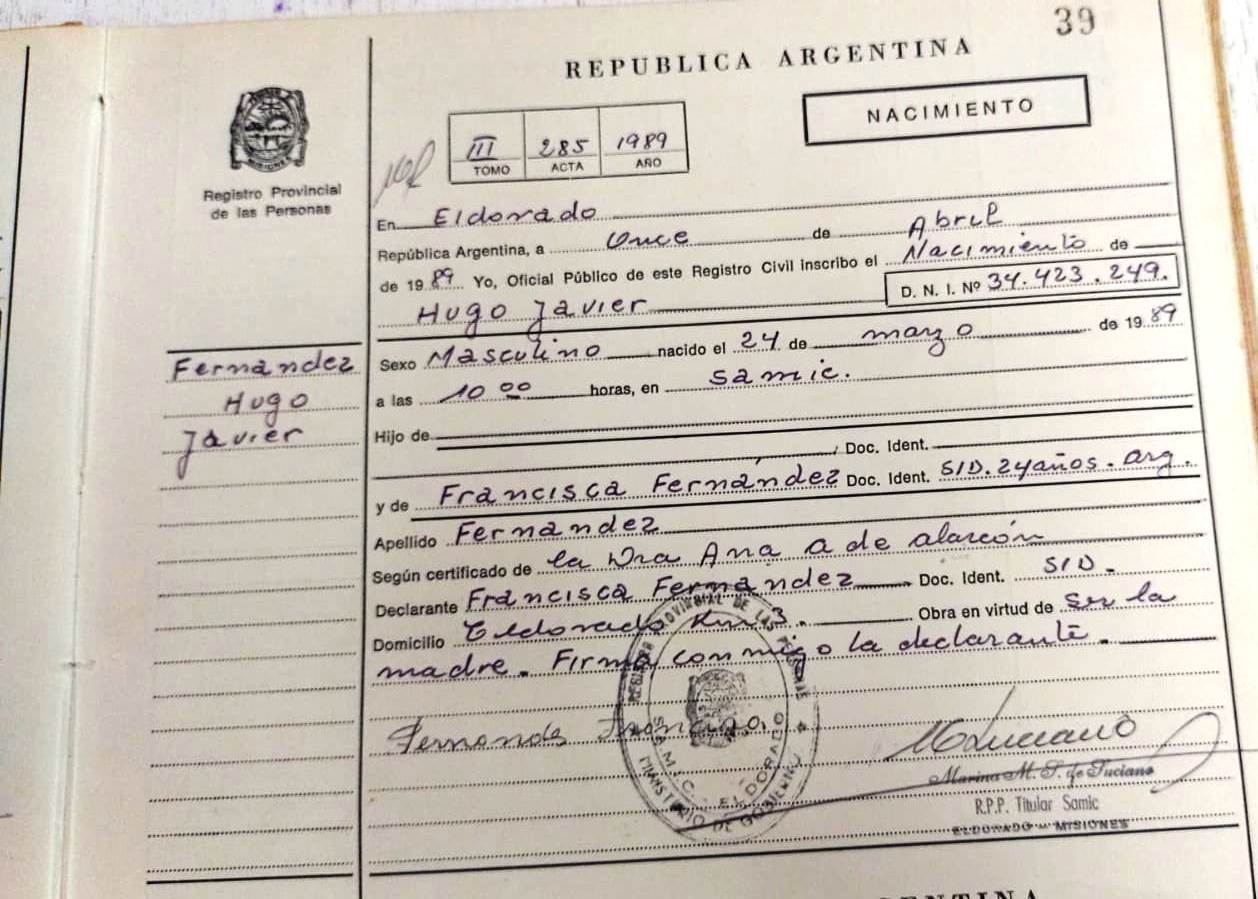 39
REPUBLICA ARGENTINA
NACIMIENTO
III 285 1989
TOMO ACTA AÑO
MISIONES
Registro Provincial
de las Personas
En Eldorado
República Argentina, a Once de Abril
de 1989 Yo, Oficial Público de este Registro Civil inscribo el Nacimiento de
Hugo Javier D. N. I. Nº 34.423.249.
Fernandez
Hugo
Javier
Sexo Masculino nacido el 24 de marzo de 1989
a las 10 00 horas, en Samic.
Hijo de
Doc. Ident.
y de Francisca Fernández Doc. Ident. S/D. 24 años. arg.
Apellido Fernandez
Según certificado de la Dra Ana A de alarcón
Declarante Francisca Fernández Doc. Ident. S/D.
Domicilio Eldorado Km 3. Obra en virtud de ser la
madre. Firma conmigo la declarante.
REGISTRO PROVINCIAL DE LAS PERSONAS
S.A.M.I.C. ELDORADO
MINISTERIO DE GOBIERNO
Marina M. de Luciano
R.P.P. Titular Samic
ELDORADO - MISIONES